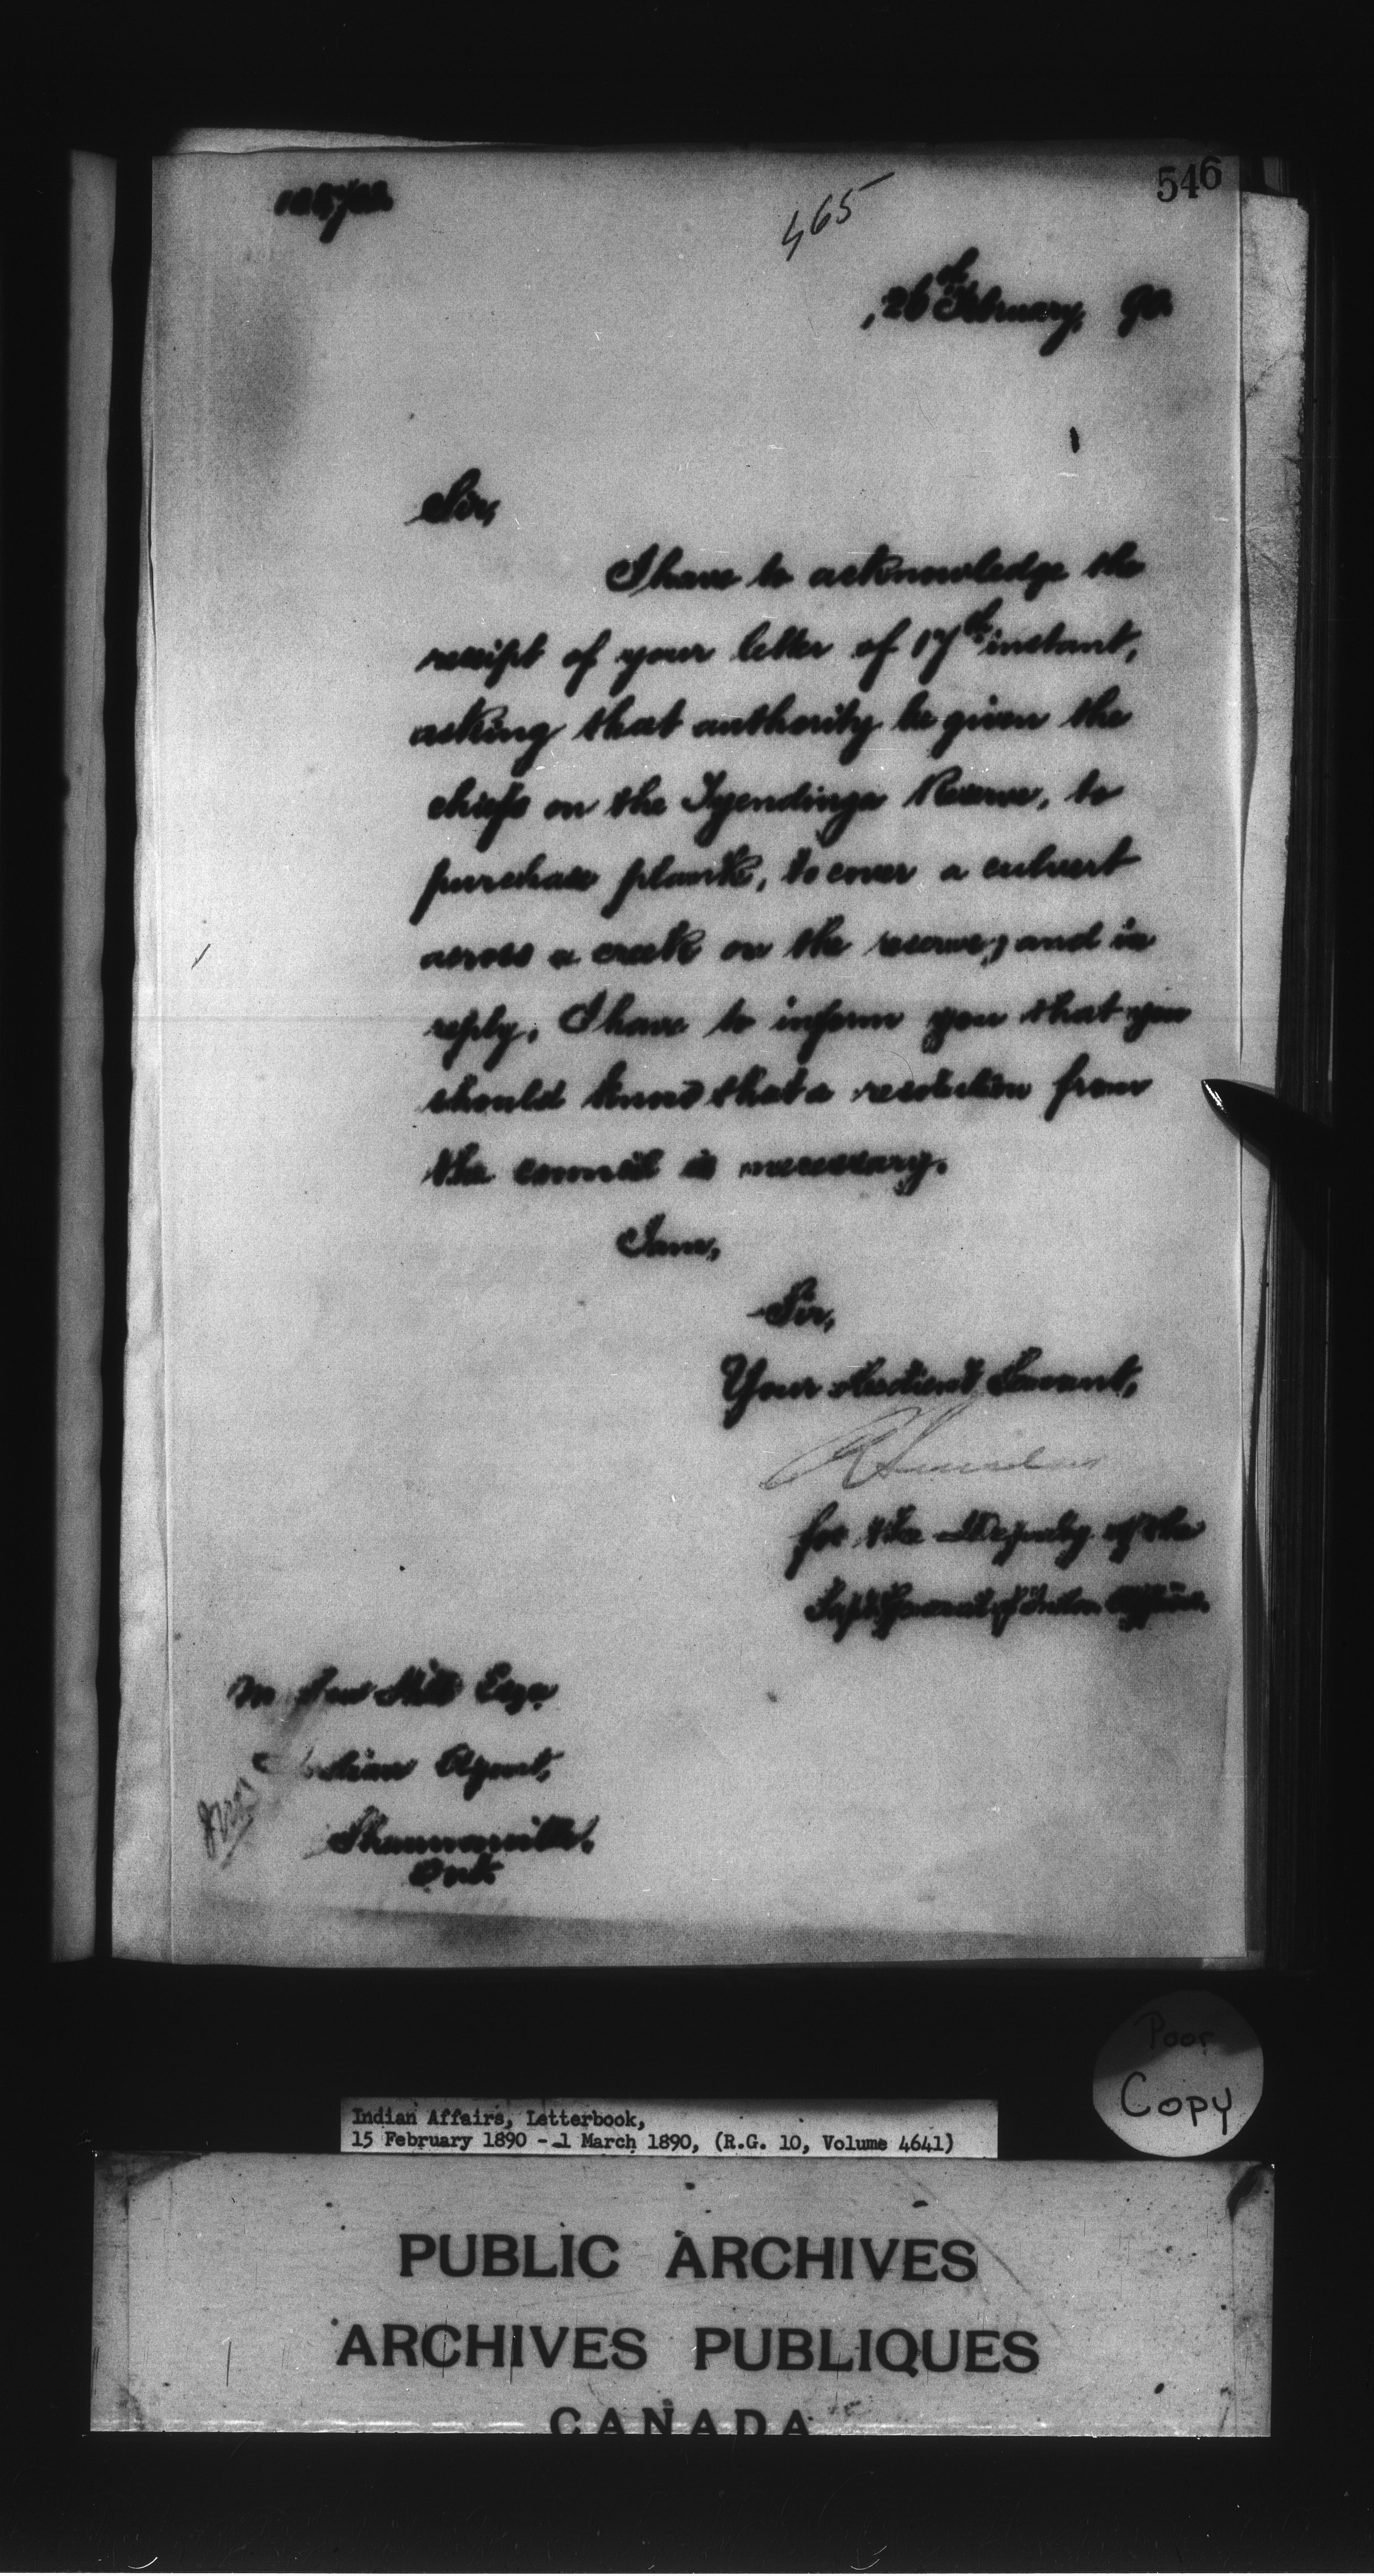 546
465
26th February, 90.
Sir,
I have to acknowledge the
receipt of your letter of 17th instant,
asking that authority be given the
chiefs on the Tyendinga Reserve, to
purchase plank, to cover a culvert
across a creek on the reserve; and in
reply, I have to inform you that you
should know that a resolution from
the council is necessary.
I am,
Sir,
Your obedient Servant,
for the Deputy of the
Supt. General of Indian Affairs.
Hill Esqr.
Indian Agent,
Shannonville,
Ont.
Poor
Copy
Indian Affairs, Letterbook,
15 February 1890 - 1 March 1890, (R.G. 10, Volume 4641)
PUBLIC ARCHIVES
ARCHIVES PUBLIQUES
CANADA